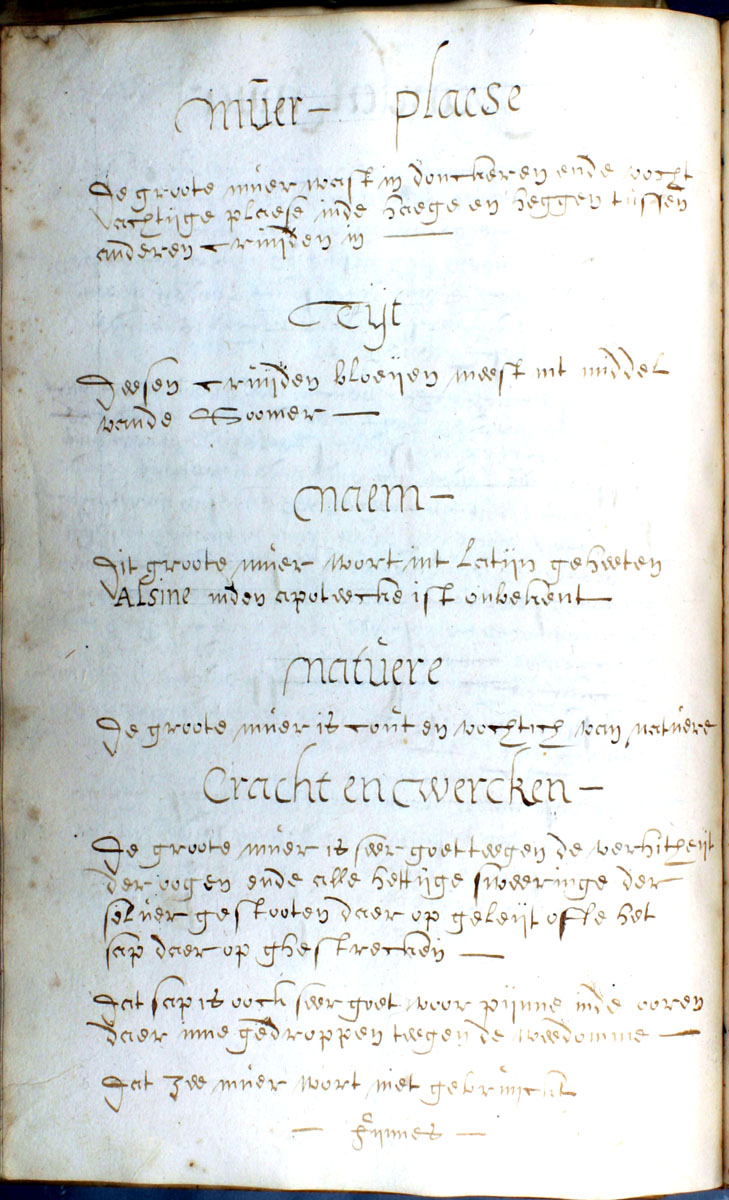 Mŭer - plaese
De groote mŭer wast in donckeren ende vocht
vachtijge plaese inde haege en heggen tŭssen
anderen crŭijden in
Tijt
Deesen crŭijden bloeijen meest int middel
vande Soomer
Naem -
Dit groote mŭer wort int Latijn geheeten
Alsine inden apoteecke ist onbekent
Natŭere
De groote mŭer is coŭt en vochtich van natŭere
Cracht en Cwercken -
De groote mŭer is seer goet teegen de verhitheijt
der oogen ende alle hettijge sweeringe der
selver gestooten daer op geleijt ofte het
sap daer op ghestrecken
Dat sap is oock seer goet voor pijnne inde ooren
daer inne gedroppen teegen de weedomme
Dat Zee mŭer wort niet gebrŭicht
- fijnnes -